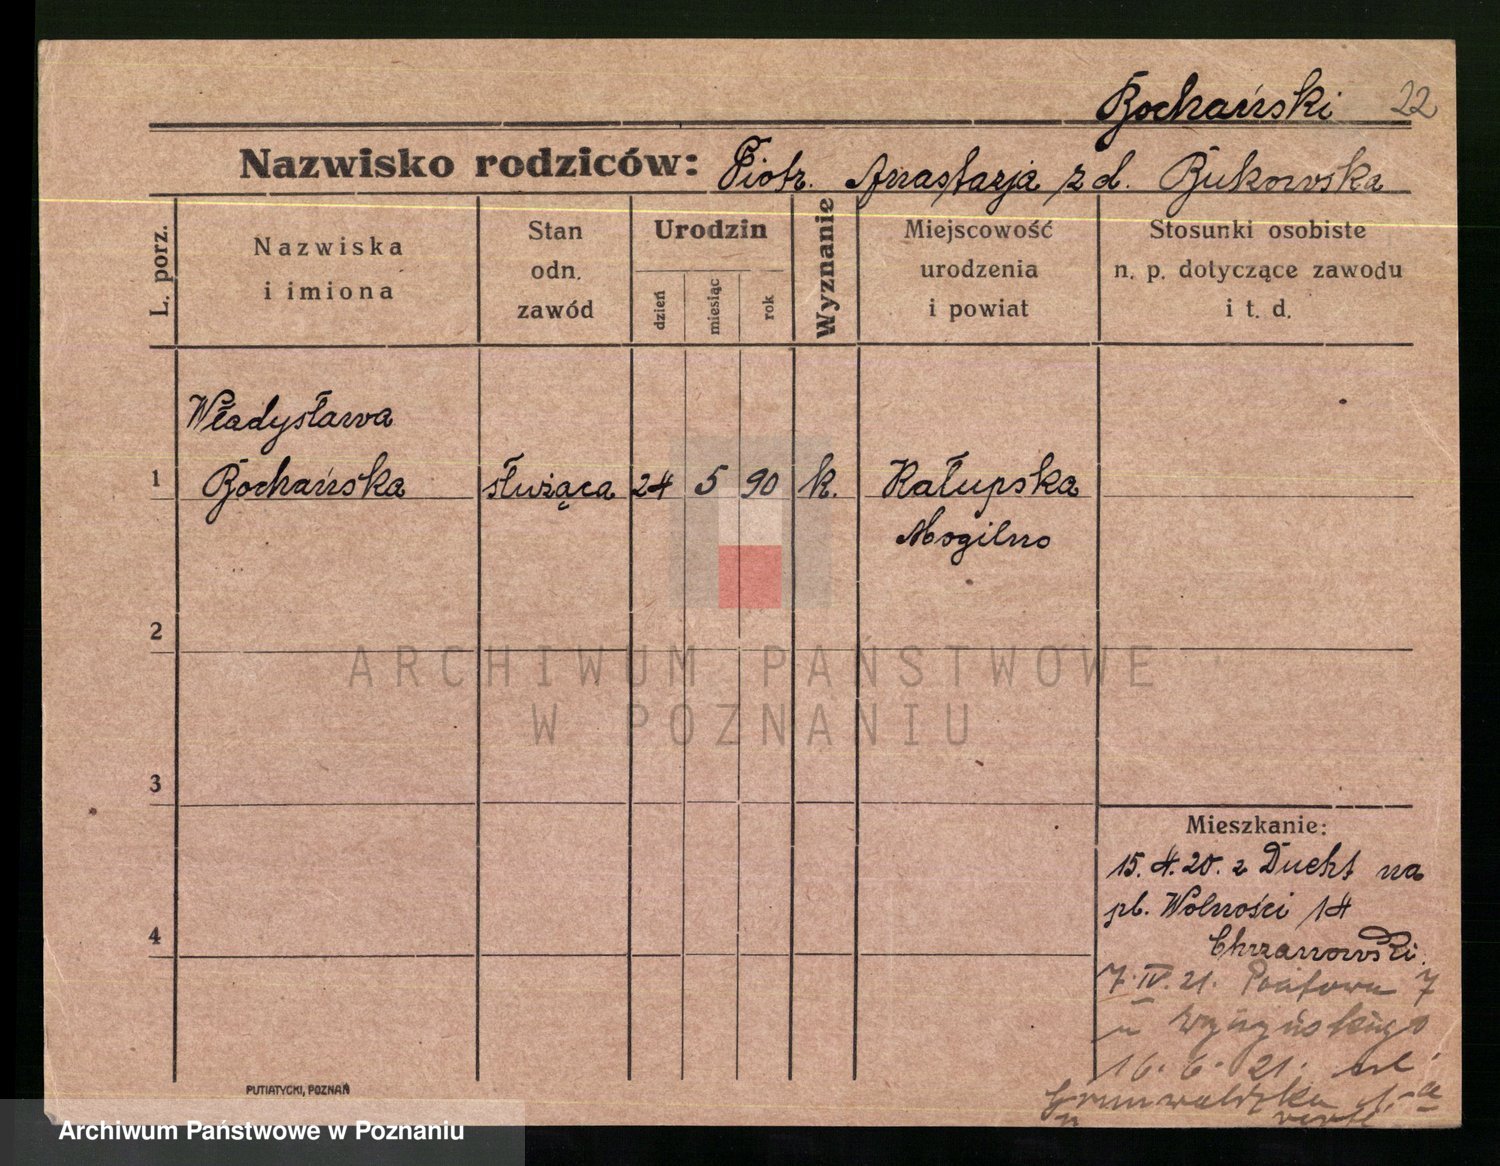 Bochański 22
Nazwisko rodziców: Piotr. Anastazja z d. Bukowska
L. porz.
Nazwiska
i imiona
Stan
odn.
zawód
Urodzin
dzień
miesiąc
rok
Wyznanie
Miejscowość
urodzenia
i powiat
Stosunki osobiste
n. p. dotyczące zawodu
i t. d.
Władysława
1 Bochańska służąca 24 5 90 k. Kałupska
Mogilno
2
ARCHIWUM PAŃSTWOWE
W POZNANIU
3
Mieszkanie:
15. 4. 20. z Ducht na
pl. Wolności 14
Chrzanowski.
4
7. IV. 21. 7
u
16. 6. 21.
Grunwaldzka
PUTIATYCKI, POZNAŃ
Archiwum Państwowe w Poznaniu